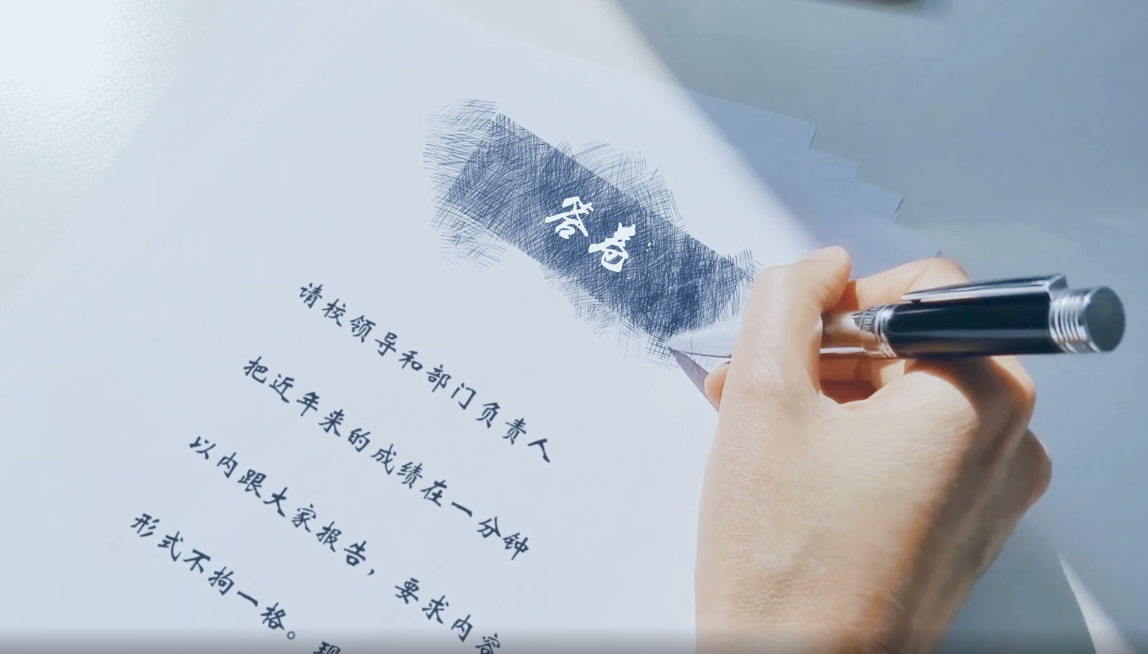 答卷
请校领导和部门负责人
把近年来的成绩在一分钟
以内跟大家报告，要求内容
形式不拘一格。现